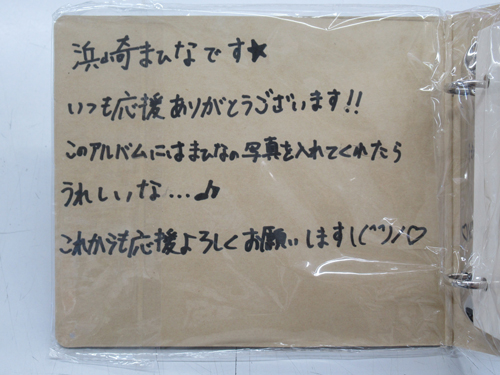 浜崎まひなです★
いつも応援ありがとうございます!!
このアルバムにはまひなの写真を入れてくれたら
うれしいな...♪
これからも応援よろしくお願いします\(^^)/♡